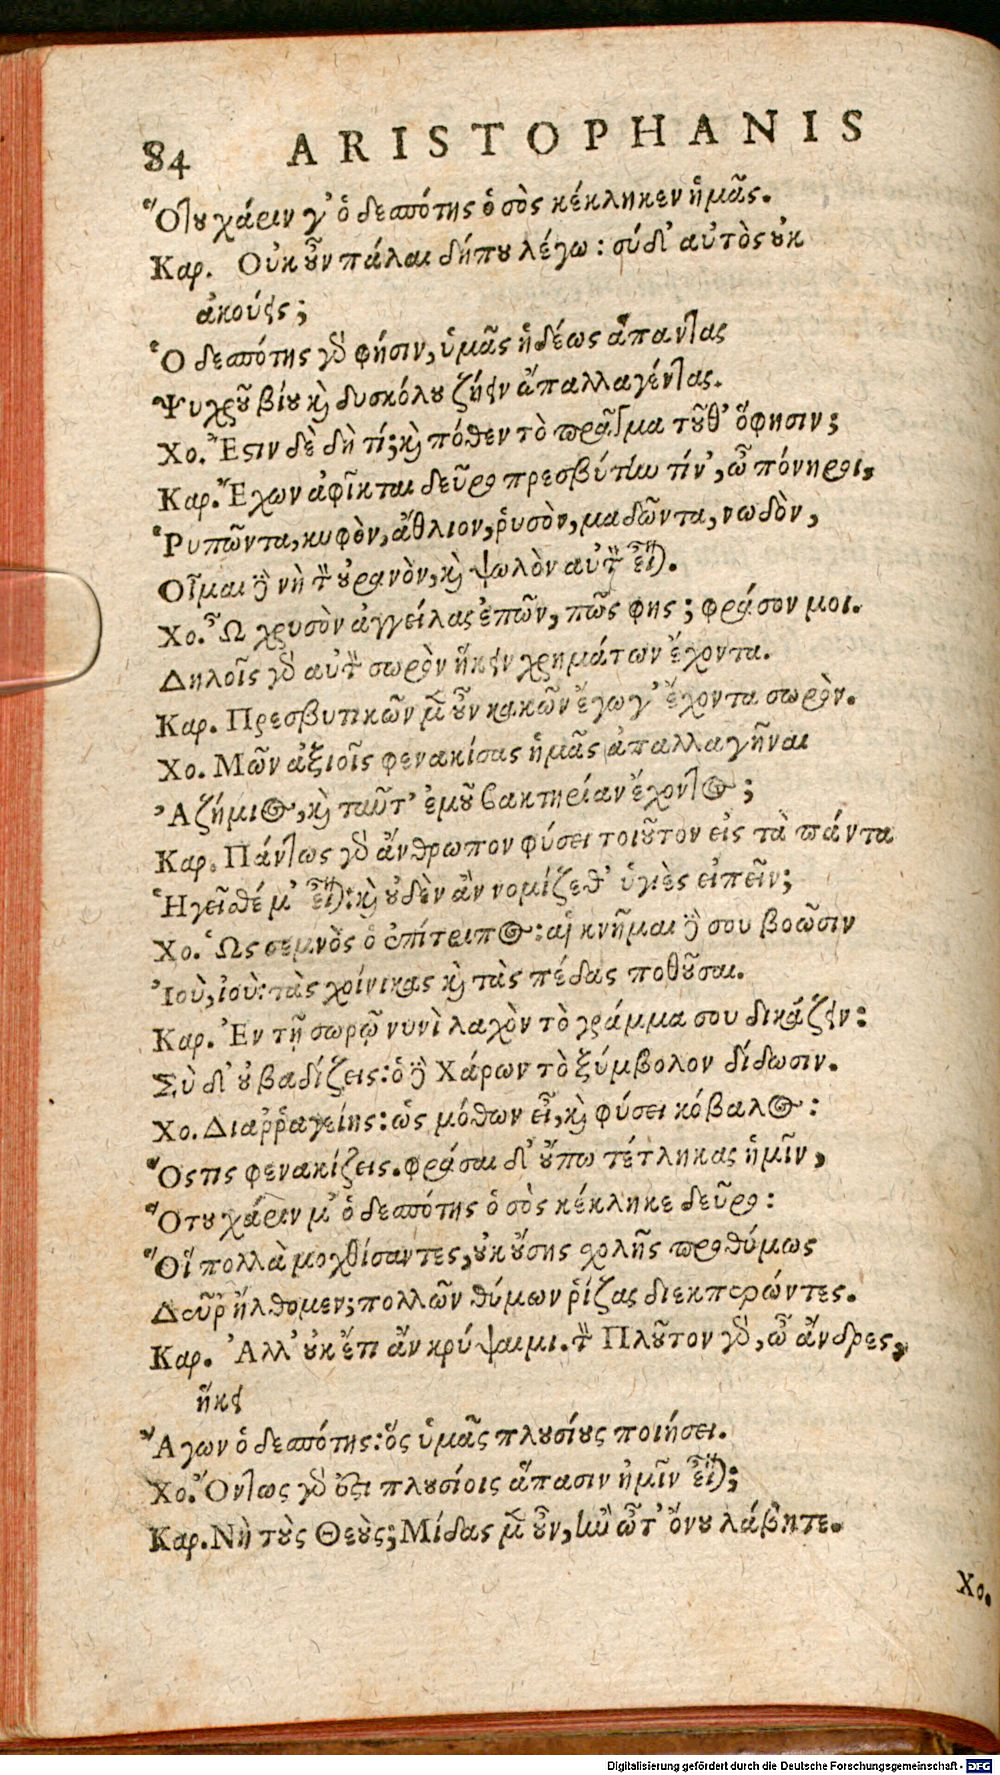 84 ARISTOPHANIS
Ὅτου χάριν γ’ ὁ δεσπότης ὁ σὸς κέκληκεν ἡμᾶς.
Καρ. Οὐκοῦν πάλαι δήπου λέγω: σύ δ’ αὐτὸς οὐκ
ἀκούεις;
Ὁ δεσπότης γὰρ φήσιν, ὑμᾶς ἡδέως ἅπαντας
Ψυχροῦ βίου καὶ δυσκόλου ζήσειν ἀπαλλαγέντας.
Χο. Ἔστιν δὲ δὴ τί; καὶ πόθεν τὸ πρᾶγμα τοῦθ’ ὅφησιν;
Καρ. Ἔχων ἀφῖκται δεῦρο πρεσβύτην τίν’, ὦ πόνηροι,
Ῥυπῶντα, κυφὸν, ἄθλιον, ῥυσὸν, μαδῶντα, νωδὸν,
Οἶμαι δὲ νὴ τὸν οὐρανὸν, καὶ ψωλὸν αὐτὸν εἶναι.
Χο. Ὦ χρυσὸν ἀγγείλας ἐπῶν, πῶς φης; φράσον μοι.
Δηλοῖς γὰρ αὐτὸν σωρὸν ἥκειν χρημάτων ἔχοντα.
Καρ. Πρεσβυτικῶν μὲν οὖν κακῶν ἔγωγ’ ἔχοντα σωρὸν.
Χο. Μῶν ἀξιοῖς φενακίσας ἡμᾶς ἀπαλλαγῆναι
Ἀζήμιος, καὶ ταῦτ’ ἐμοῦ βακτηρίαν ἔχοντος;
Καρ. Πάντως γὰρ ἄνθρωπον φύσει τοιοῦτον εἰς τὰ πάντα
Ἡγεῖσθέ μ’ εἶναι: καὶ οὐδὲν ἂν νομίζεθ’ ὑγιὲς εἰπεῖν;
Χο. Ὡς σεμνὸς ὁ ἐπίτριπτος: αἱ κνῆμαι δὲ σου βοῶσιν
Ἰοὺ, ἰού: τὰς χοίνικας καὶ τὰς πέδας ποθοῦσαι.
Καρ. Ἐν τῇ σωρῷ νυνὶ λαχὸν τὸ γράμμα σου δικάζειν:
Σὺ δ’ οὐ βαδίζεις: ὁ δὲ Χάρων τὸ ξύμβολον δίδωσιν.
Χο. Διαῤῥαγείης: ὡς μόθων εἶ, καὶ φύσει κόβαλος:
Ὅστις φενακίζεις. φράσαι δ’ οὔπω τέτληκας ἡμῖν,
Ὅτου χάριν μ’ ὁ δεσπότης ὁ σὸς κέκληκε δεῦρο:
Οἵ πολλὰ μοχθίσαντες, οὐκ οὔσης σχολῆς προθύμως
Δεῦρ’ ἤλθομεν; πολλῶν θύμων ῥίζας διεκπερώντες.
Καρ. Ἀλλ’ οὐκ ἔτι ἂν κρύψαιμι. τὸν Πλοῦτον γὰρ, ὦ ἄνδρες,
ἥκει
Ἄγων ὁ δεσπότης: ὅς ὑμᾶς πλουσίους ποιήσει.
Χο. Ὄντως γὰρ ἔστι πλουσίοις ἅπασιν ἡμῖν εἶναι;
Καρ. Νὴ τοὺς Θεοὺς; Μίδας μὲν οὖν, ἢν ὦτ’ ὄνου λάβητε.
Χο.
Digitalisierung gefördert durch die Deutsche Forschungsgemeinschaft - DFG